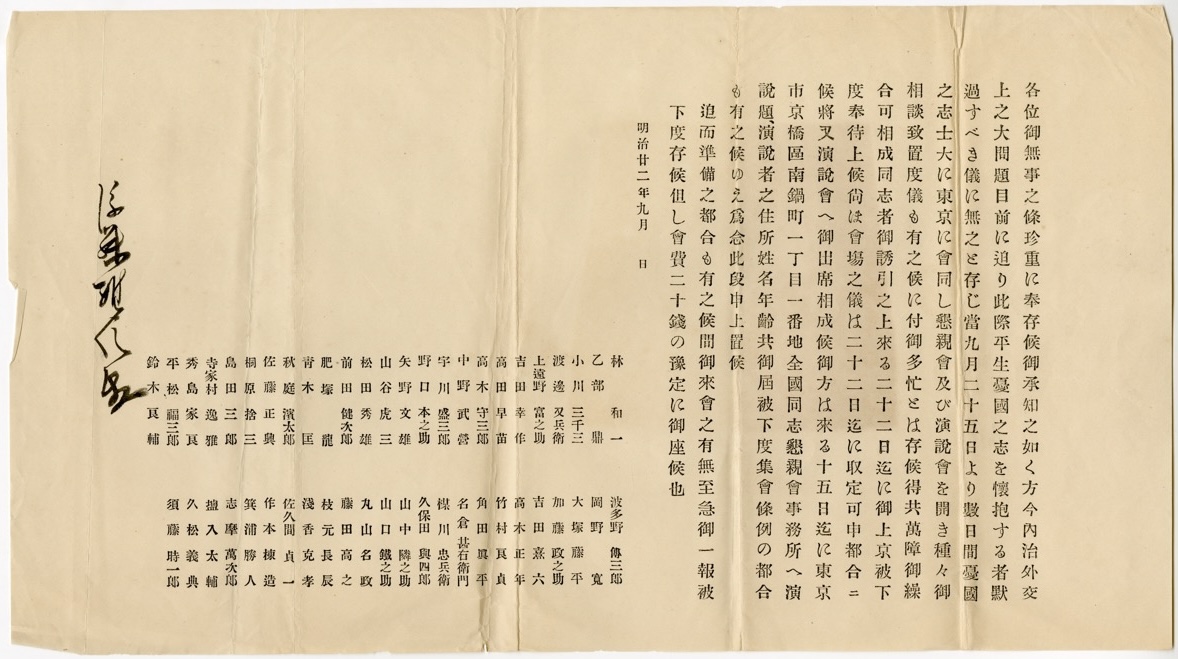 各位御無事之條珍重に奉存候御承知之如く方今內治外交
上之大問題目前に迫り此際平生憂國之志を懷抱する者默
過すべき儀に無之と存じ當九月二十五日より數日間憂國
之志士大に東京に會同し懇親會及び演說會を開き種々御
相談致置度儀も有之候に付御多忙とは存候得共萬障御繰
合可相成同志者御誘引之上來る二十二日迄に御上京被下
度奉待上候尙ほ會塲之儀は二十二日迄に取定可申都合ニ
候將又演說會へ御出席相成候御方は來る十五日迄に東京
市京橋區南鍋町一丁目一番地全國同志懇親會事務所へ演
說題、演說者之住所姓名年齡共御屆被下度集會條例の都合
も有之候ゆえ爲念此段申上置候
追而準備之都合も有之候間御來會之有無至急御一報被
下度存候但し會費二十錢の豫定に御座候也
明治廿二年九月　日
林和一　波多野傳三郎
乙部鼎　岡野寬
小川三千三　大塚藤平
渡邊又兵衛　加藤政之助
上遠野富之助　吉田熹六
吉田幸作　高木正年
高田早苗　竹村良貞
高木守三郎　角田眞平
中野武營　名倉甚右衛門
宇川盛三郎　楳川忠兵衛
野口本之助　久保田與四郎
矢野文雄　山中隣之助
山谷虎三　山口鐵之助
松田秀雄　丸山名政
前田健次郎　藤田高之
肥塚龍　枝元長辰
青木匡　淺香克孝
秋庭濱太郎　佐久間貞一
佐藤正興　作本棟造
桐原捨三　箕浦勝人
島田三郎　志摩萬次郎
寺家村逸雅　搵入太輔
秀島家良　久松義典
平松福三郎　須藤時一郎
鈴木良輔